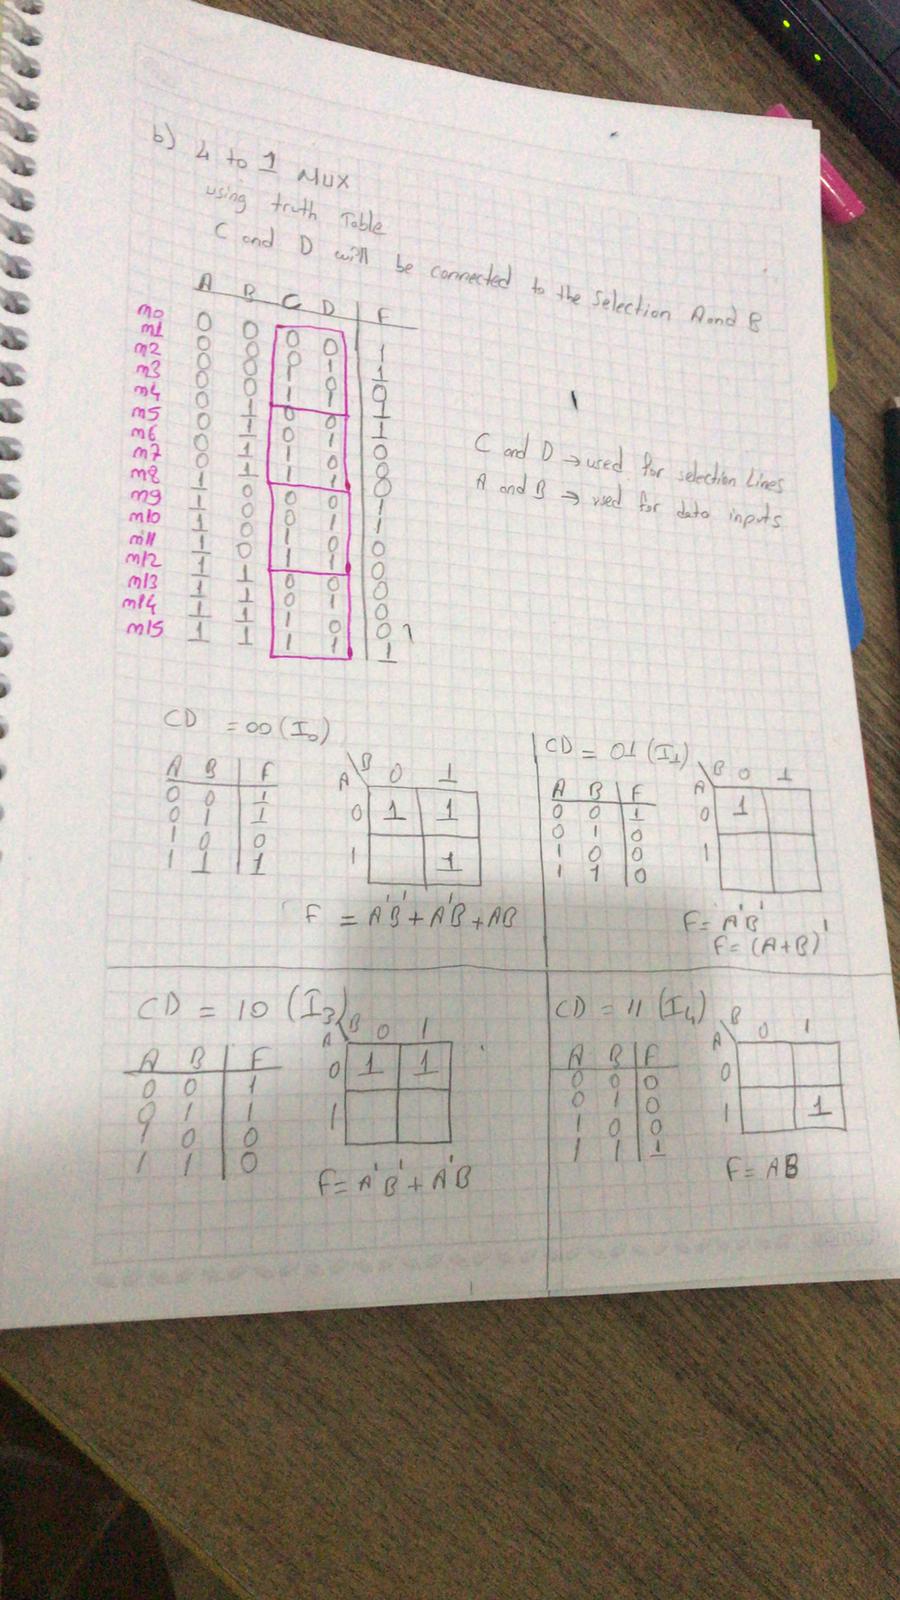 b) 4 to 1 Mux
using truth Table
C and D will be connected to the Selection A and B
A B C D F
m0 0 0 0 0 1
m1 0 0 0 1 1
m2 0 0 1 0 0
m3 0 0 1 1 1
m4 0 1 0 0 1
m5 0 1 0 1 0
m6 0 1 1 0 0
m7 0 1 1 1 0
m8 1 0 0 0 1
m9 1 0 0 1 1
m10 1 0 1 0 0
m11 1 0 1 1 0
m12 1 1 0 0 0
m13 1 1 0 1 0
m14 1 1 1 0 0 1
m15 1 1 1 1 1
C and D → used for selection Lines
A and B → used for data inputs
CD = 00 (I0)
A B F
0 0 1
0 1 1
1 0 0
1 1 1
B 0 1
A
0 1 1
1 1
F = A'B' + A'B + AB
CD = 01 (I1)
A B F
0 0 1
0 1 0
1 0 0
1 1 0
B 0 1
A
0 1
1
F = A'B'
F = (A+B)'
CD = 10 (I3)
A B F
0 0 1
0 1 1
1 0 0
1 1 0
B 0 1
A
0 1 1
1
F = A'B' + A'B
CD = 11 (I4)
A B F
0 0 0
0 1 0
1 0 0
1 1 1
B 0 1
A
0
1 1
F = AB